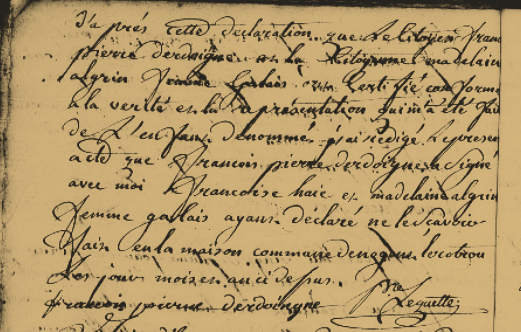 D'a prés cette declaration que le citoyen franc
pierre derdoigne et la Citoyenne madelain
algrin femme galais ont Certifié conforme
a la verité et la representation qui m'a été fai
de L'enfan denommé, j'ai redigé Le presen
acte que francois pierre derdoigne a Signé
avec moi francoise haie et madelaine algrin
femme gallais ayant déclaré ne le scavoir
fait en la maison commune de
Les jour mois et an ci desus.
francois pierre derdoingne Leguette